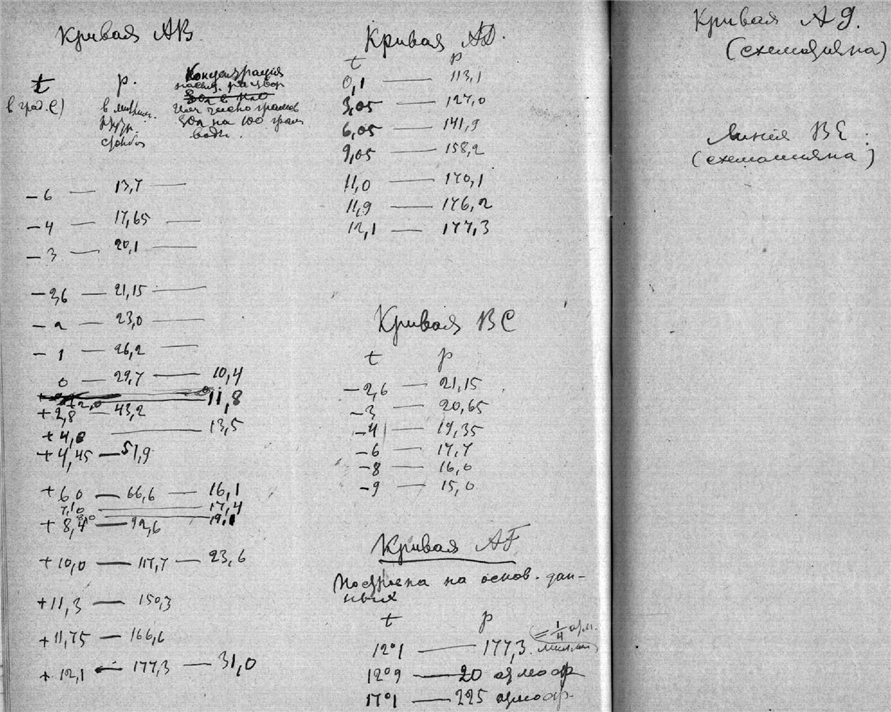 Кривая АВ
t p. Концентрация
в град. С) в миллим. насыщ. раствор
ртутн. или число грамов
столба на 100 грам
воды.
-6 — 13,7 —
-4 — 17,65 —
-3 — 20,1 —
-2,6 — 21,15 —
-2 — 23,0 —
-1 — 26,2 —
0 — 29,7 — 10,4
+2,0 — 11,8
+2,8 — 43,2
+4,0 — 13,5
+4,45 — 51,9
+6,0 — 66,6 — 16,1
7,10 — 17,4
+8,4 — 92,6
+10,0 — 117,7 — 23,6
+11,3 — 150,3
+11,75 — 166,6
+12,1 — 177,3 — 31,0
Кривая АD.
t p
0,1 — 113,1
3,05 — 127,0
6,05 — 141,9
9,05 — 158,2
11,0 — 170,1
11,9 — 176,2
12,1 — 177,3
Кривая ВС
t p
-2,6 — 21,15
-3 — 20,65
-4 — 19,35
-6 — 17,7
-8 — 16,0
-9 — 15,0
Кривая AF
Построена на основ. дан-
ных
t p
12°1 — 177,3
12°9 — 20 атмосф
17°1 — 225 атмосф.
Кривая Ag.
(схематична)
Линия ВЕ.
(схематична)